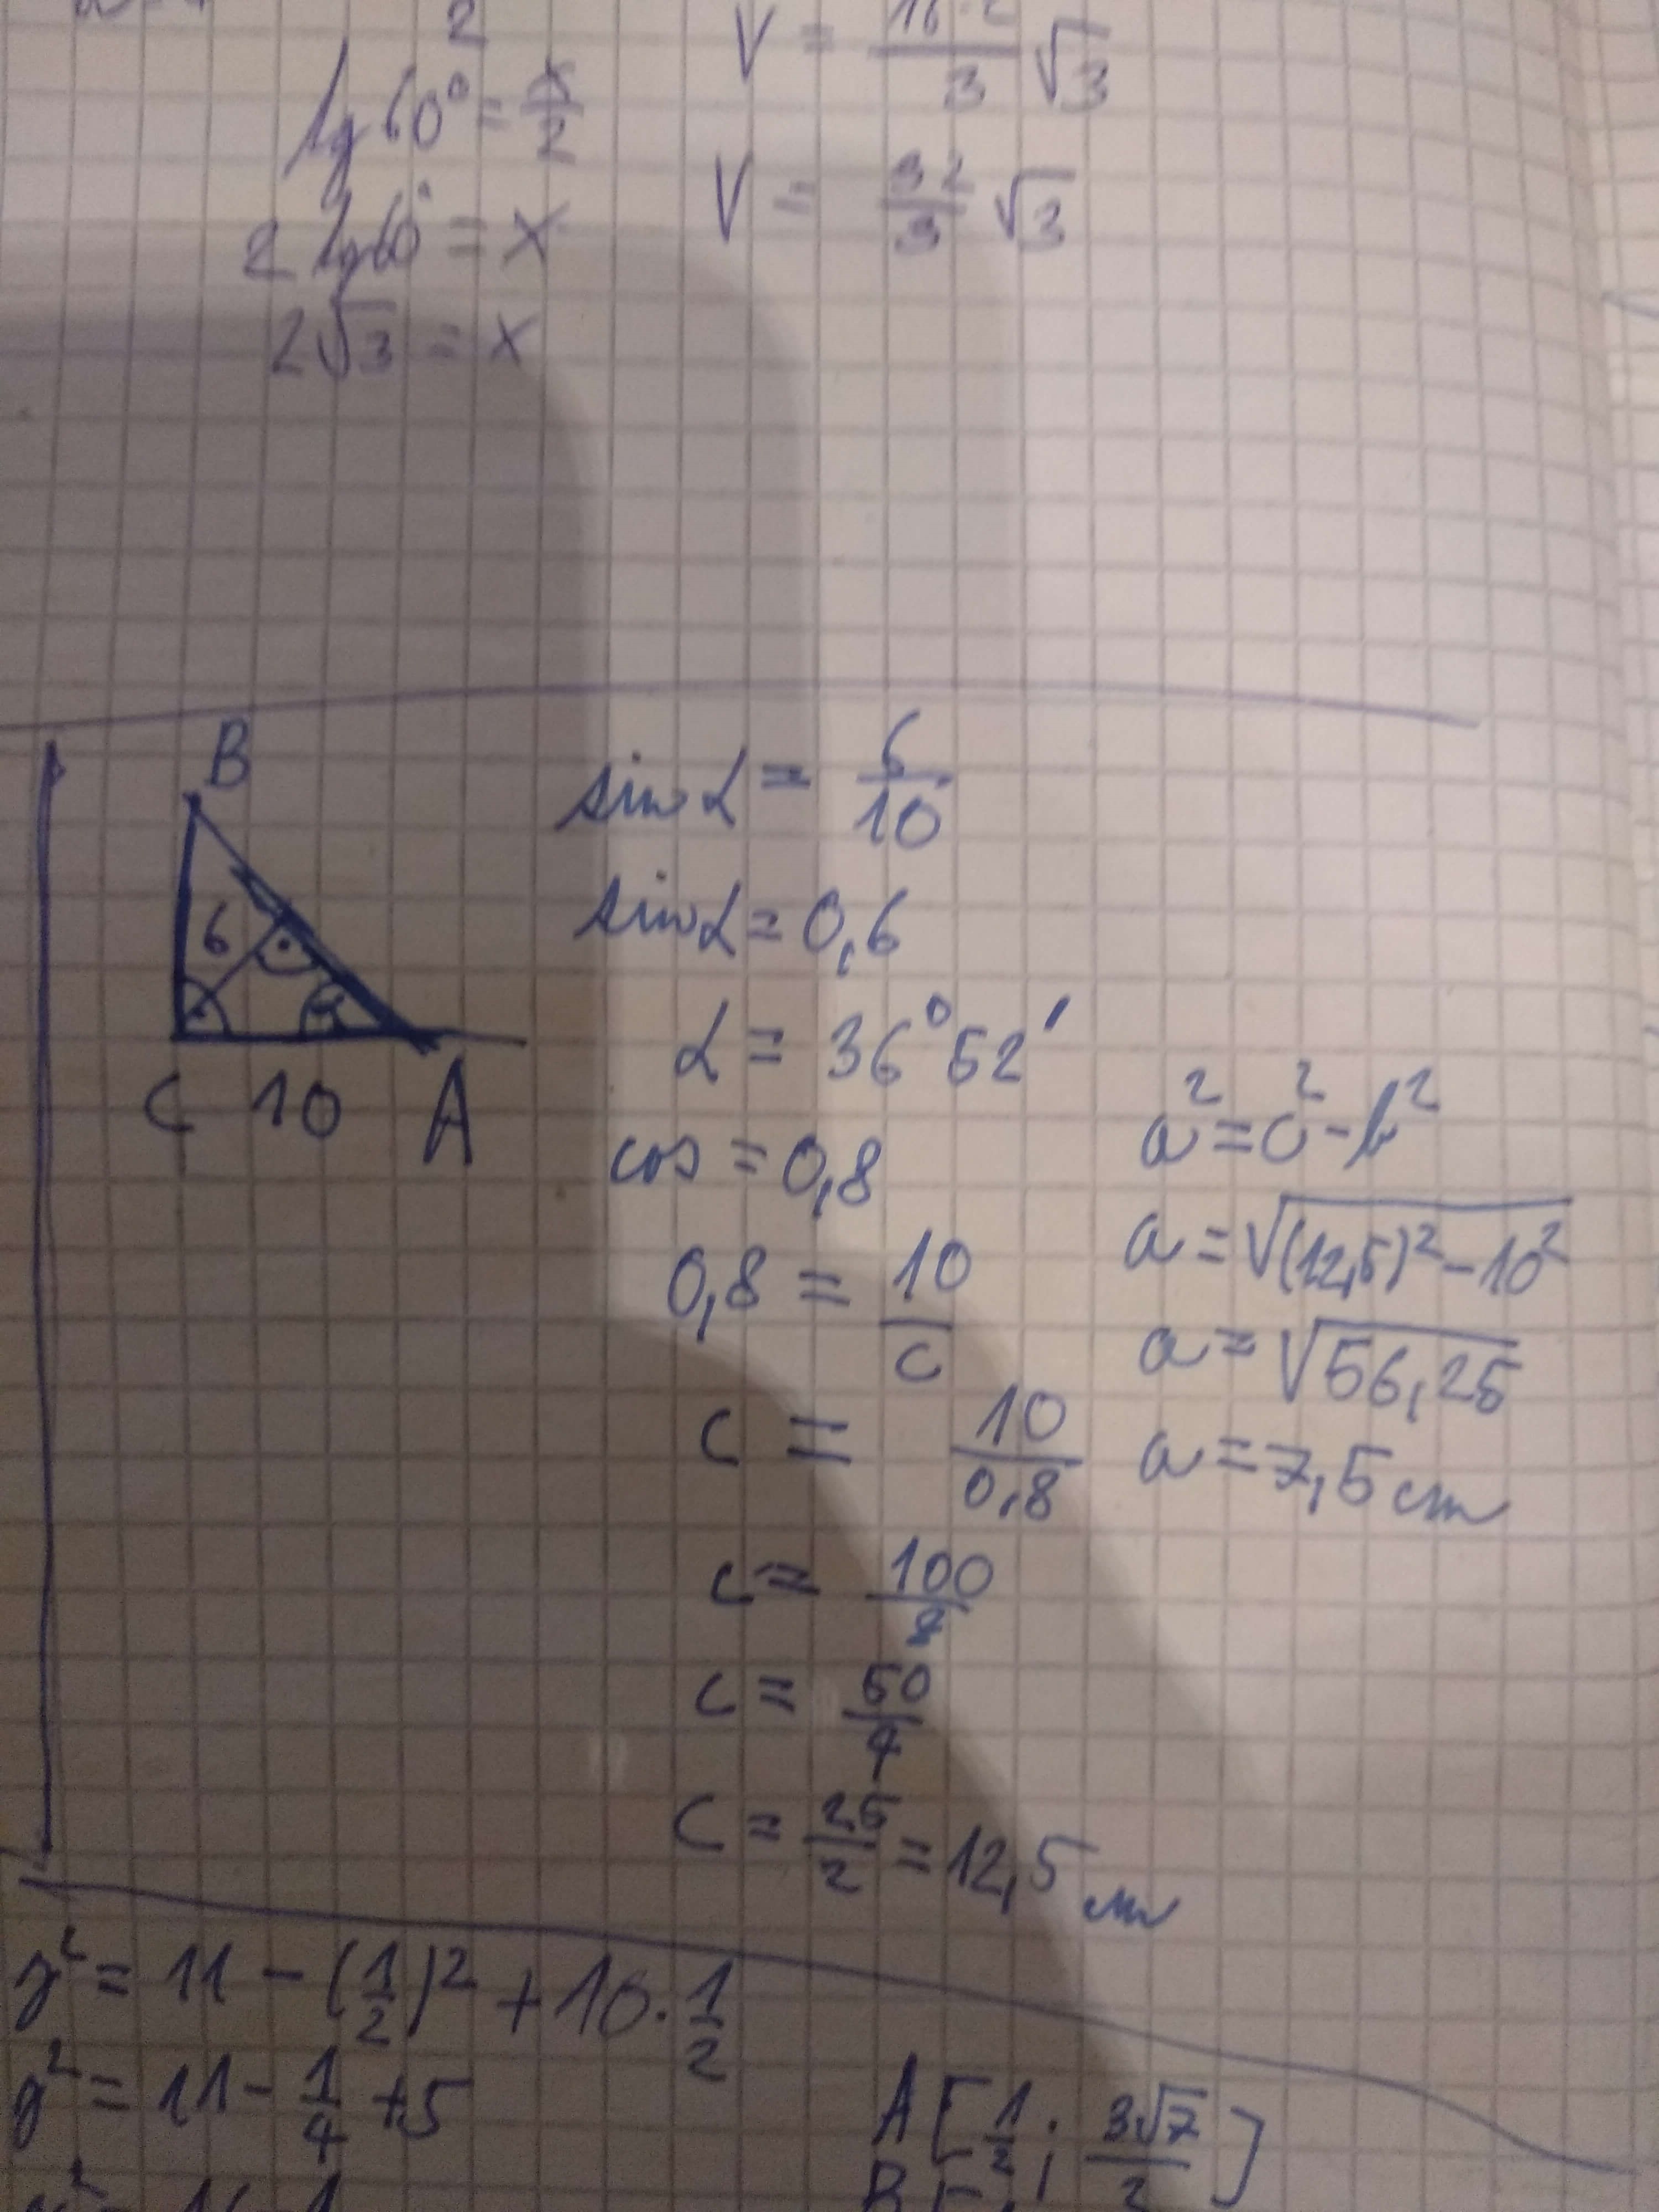 2
tg 60° = x/2
2 tg 60° = x
2√3 = x
V = 16·2/3 √3
V = 32/3 √3
B
6
α
C 10 A
sin α = 6/10
sin α = 0,6
α = 36°52'
cos = 0,8
0,8 = 10/c
c = 10/0,8
c = 100/8
c = 50/4
c = 25/2 = 12,5 cm
a² = c² - b²
a = √(12,5)² - 10²
a = √56,25
a = 7,5 cm
y² = 11 - (1/2)² + 10 · 1/2
y² = 11 - 1/4 + 5
A [1/2 ; 3√7/2]